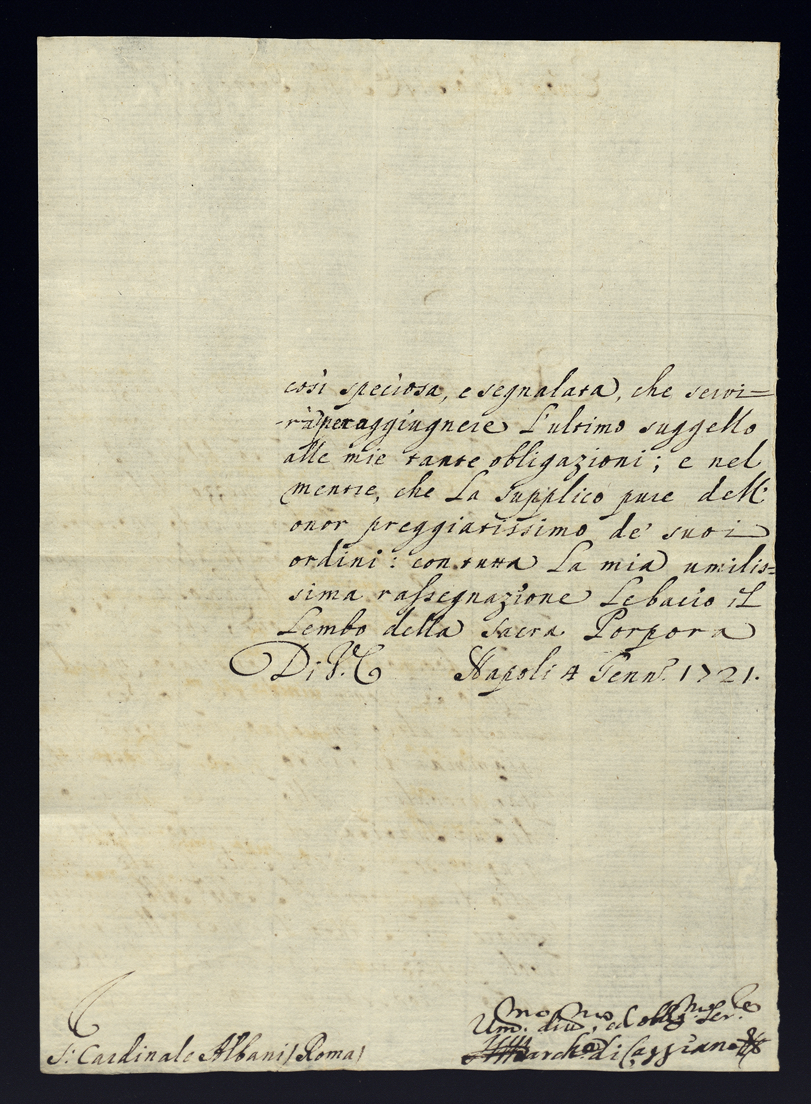 così speciosa, e segnalata, che servi=
rà per aggiugnere L'ultimo suggello
alle mie tante obligazioni; e nel
mentre, che La supplico pure dell'
onor preggiatissimo de' suoi
ordini: con tutta La mia umilis=
sima rassegnazione Le bacio il
Lembo della Sacra Porpora
Di V. E. Napoli 4 Genn.º 1721.
Um.mo div.mo, ed obblig.mo Ser.re
S.r Cardinale Albani (Roma)
March. di